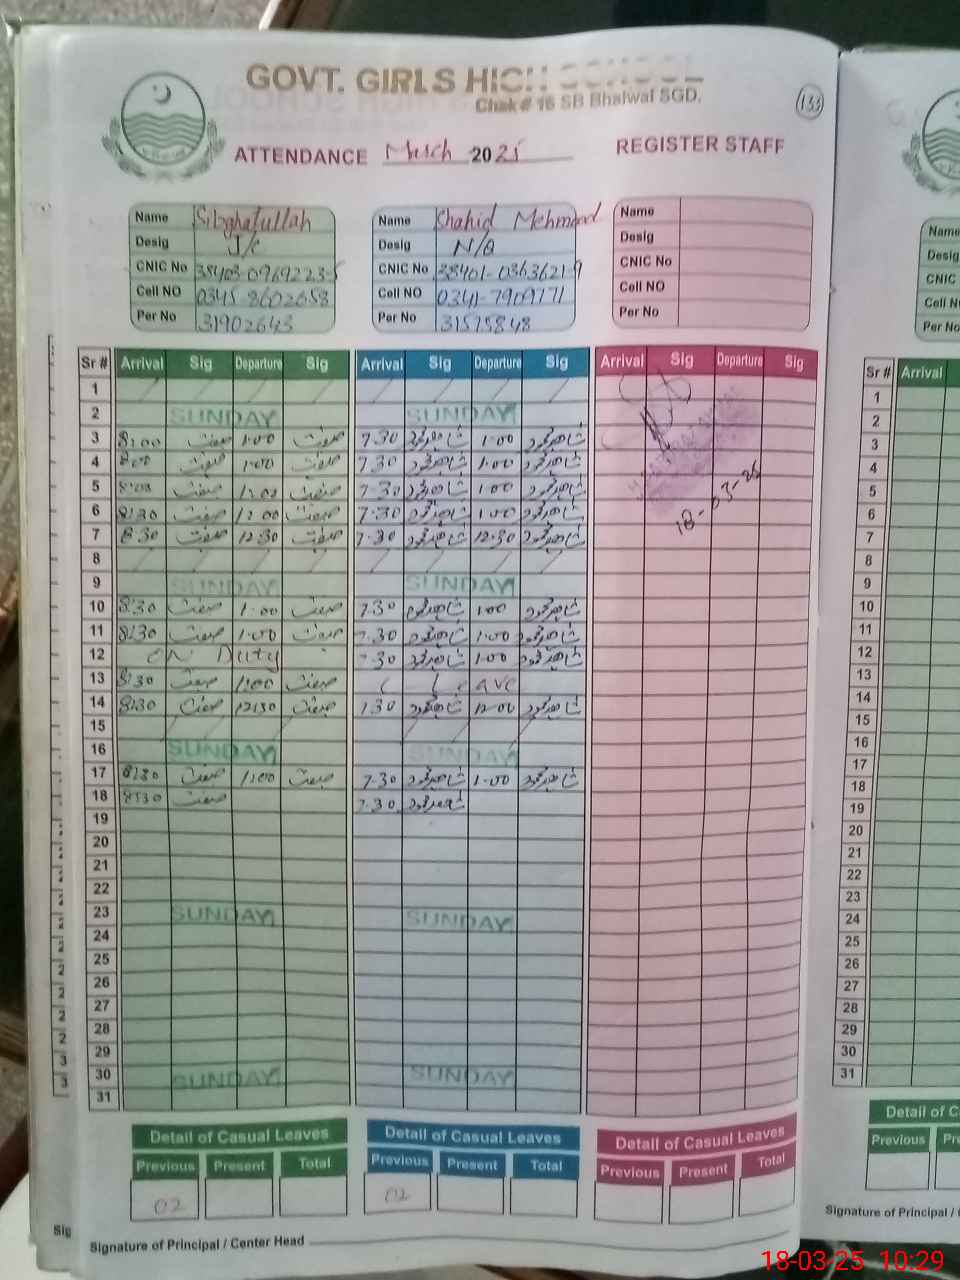 GOVT. GIRLS HIGH SCHOOL
Chak # 16 SB Bhalwal SGD.
133
ATTENDANCE March 2025 REGISTER STAFF
Name Sibghatullah Name Shahid Mehmood Name
Desig J/C Desig N/Q Desig
CNIC No 38403-0969223-5 CNIC No 38401-0363621-9 CNIC No
Cell NO 0345 8602658 Cell NO 0341-7909771 Cell NO
Per No 31902643 Per No 31575848 Per No
Sr # Arrival Sig Departure Sig Arrival Sig Departure Sig Arrival Sig Departure Sig
1
2 SUNDAY SUNDAY
3 8:00 صبغت 1:00 صبغت 7-30 شاہد محمود 1-00 شاہد محمود
4 8:00 صبغت 1:00 صبغت 7-30 شاہد محمود 1-00 شاہد محمود
5 8:00 صبغت 1:00 صبغت 7-30 شاہد محمود 1-00 شاہد محمود
6 8:30 صبغت 1:00 صبغت 7-30 شاہد محمود 1-00 شاہد محمود
18-03-25
7 8:30 صبغت 12:30 صبغت 7-30 شاہد محمود 12-30 شاہد محمود
8
9 SUNDAY SUNDAY
10 8:30 صبغت 1:00 صبغت 7-30 شاہد محمود 1-00 شاہد محمود
11 8:30 صبغت 1:00 صبغت 7-30 شاہد محمود 1-00 شاہد محمود
12 ON Duty 7-30 شاہد محمود 1-00 شاہد محمود
13 8:30 صبغت 1:00 صبغت Leave
14 8:30 صبغت 12:30 صبغت 7-30 شاہد محمود 12-00 شاہد محمود
15
16 SUNDAY SUNDAY
17 8:30 صبغت 1:00 صبغت 7-30 شاہد محمود 1-00 شاہد محمود
18 8:30 صبغت 7-30 شاہد محمود
19
20
21
22
23 SUNDAY SUNDAY
24
25
26
27
28
29
30 SUNDAY SUNDAY
31
Detail of Casual Leaves Detail of Casual Leaves Detail of Casual Leaves
Previous Present Total Previous Present Total Previous Present Total
02 02
Signature of Principal / Center Head
Sig
Name
Desig
CNIC
Cell N
Per No
Sr # Arrival
1
2
3
4
5
6
7
8
9
10
11
12
13
14
15
16
17
18
19
20
21
22
23
24
25
26
27
28
29
30
31
Detail of C
Previous Pr
Signature of Principal /
18-03-25 10:29